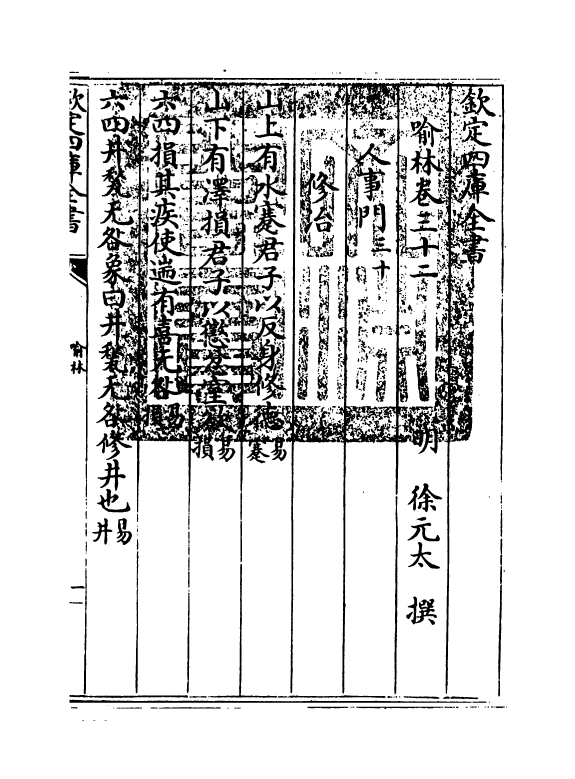 欽定四庫全書
喻林卷三十二
明 徐元太 撰
人事門三十
修治
山上有水蹇君子以反身修德易蹇
山下有澤損君子以懲忿窒欲易損
六四損其疾使遄有喜无咎易
六四井甃无咎象曰井甃无咎修井也易井
欽定四庫全書
喻林
一